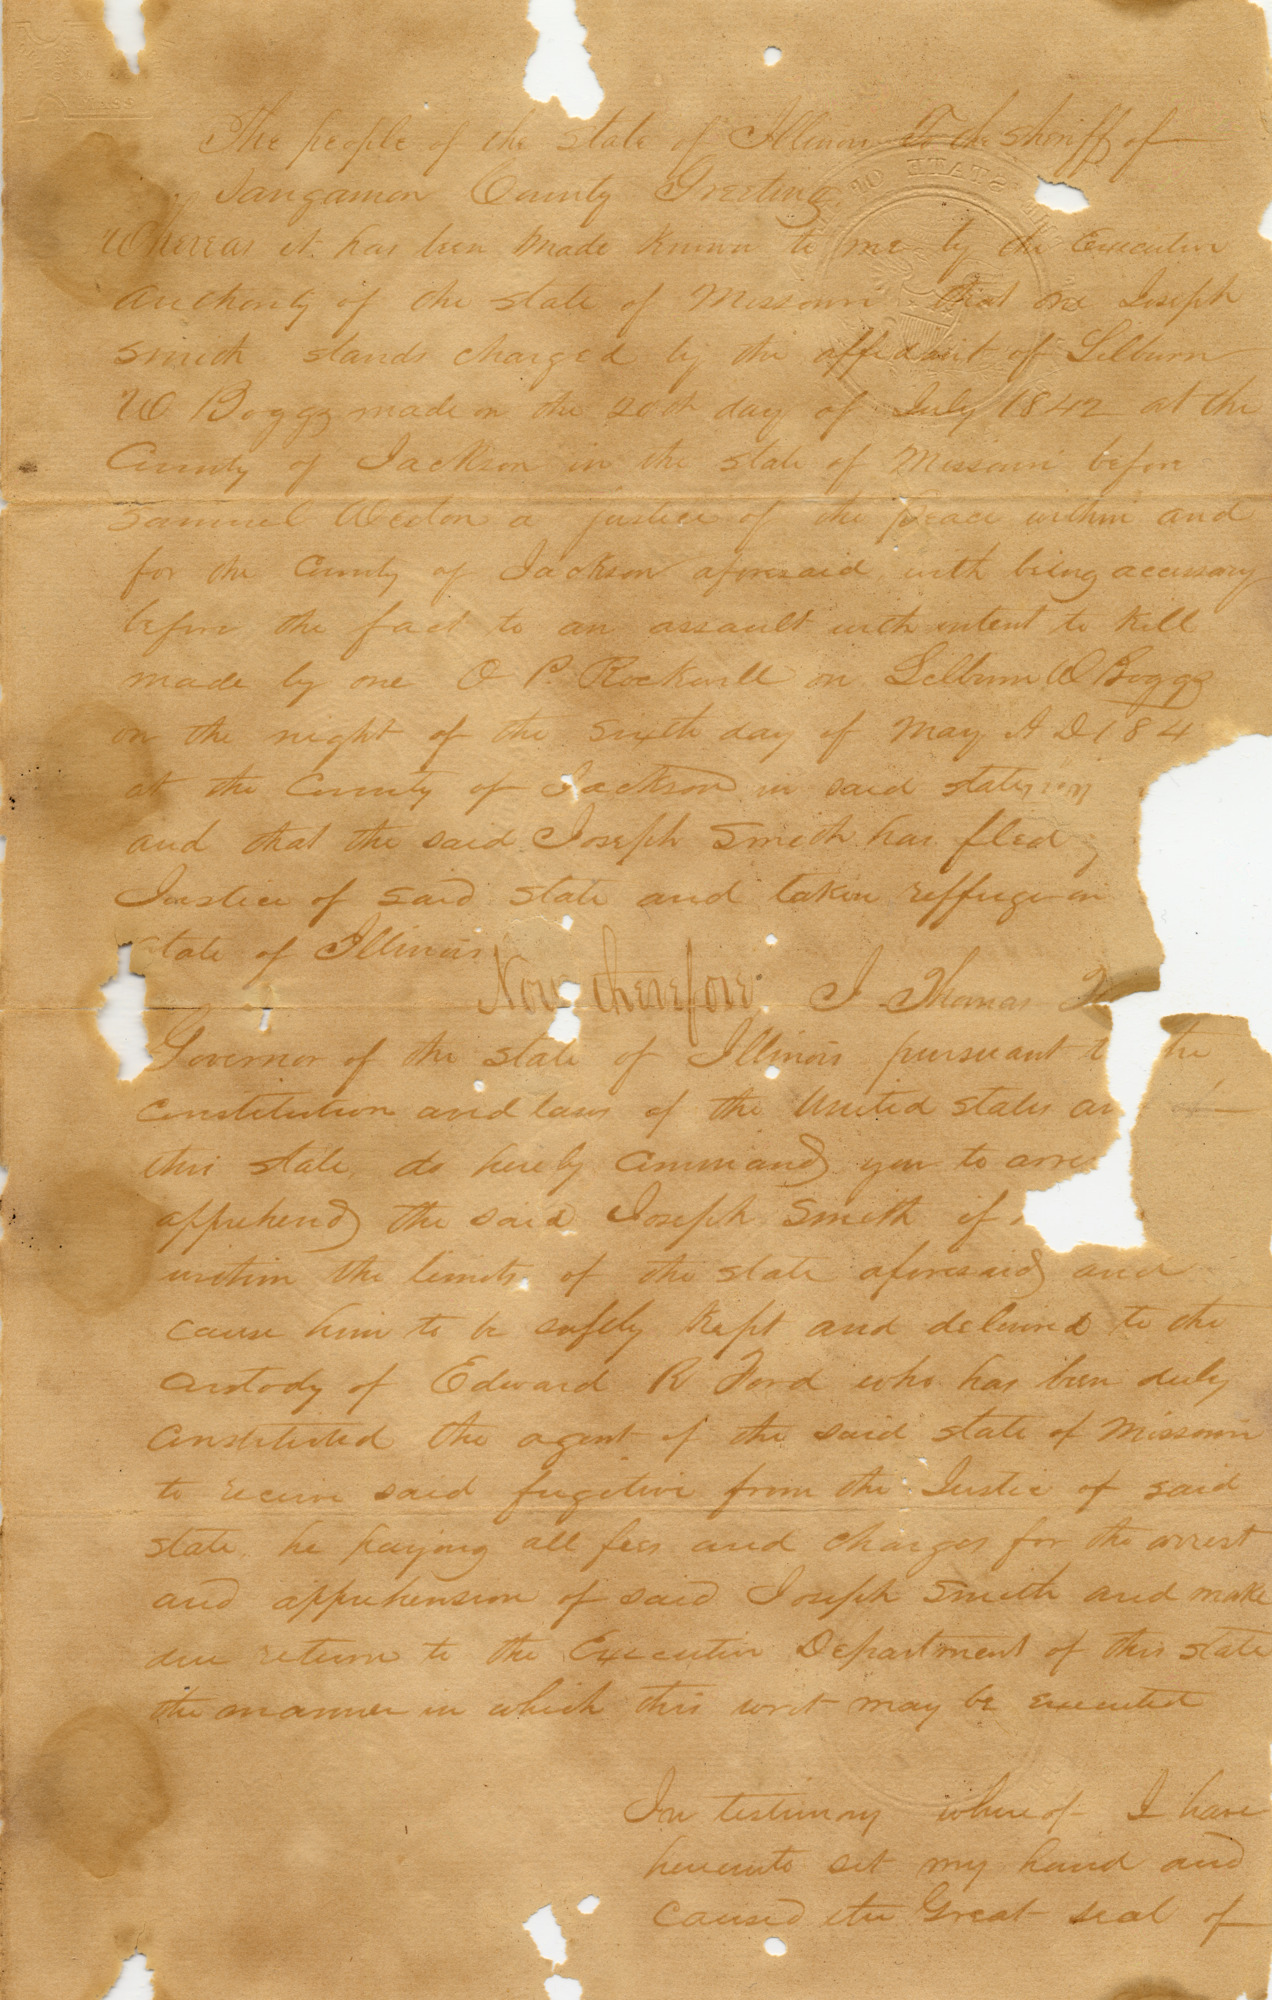 The people of the state of Illinois To the sheriff of
Sangamon County Greeting
Whereas it has been made known to me by the Executive
authority of the state of Missouri that one Joseph
Smith stands charged by the affidavit of Lilburn
W Boggs made on the 20th day of July 1842 at the
County of Jackson in the state of Missouri before
Samuel Weston a justice of the peace within and
for the County of Jackson aforesaid with being accessary
before the fact to an assault with intent to kill
made by one O P. Rockwell on Lilburn W Boggs
on the night of the sixth day of May A D 184
at the County of Jackson in said state
and that the said Joseph Smith has fled
Justice of said state and taken reffuge in
tate of Illinois
Now therefore I Thomas
Governor of the state of Illinois pursuant t the
constitution and laws of the United States an of
this state do hereby command you to arre
apprehend the said Joseph Smith if
within the limits of the state aforesaid and
cause him to be safely kept and delivered to the
custody of Edward R Ford who has been duly
constituted the agent of the said state of Missouri
to receive said fugitive from the Justice of said
state he paying all fees and charges for the arrest
and apprehension of said Joseph Smith and make
due return to the Executive Department of this state
the manner in which this writ may be executed
In testimony whereof I have
hereunto set my hand and
caused the Great seal of